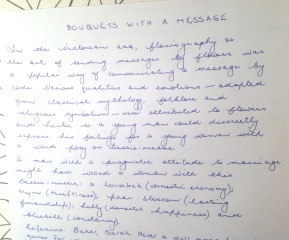 BOUQUETS WITH A MESSAGE
In the Victorian era, floriography or
the art of sending messages by flowers was
a popular way of communicating a message by
code. Various qualities and emotions - adapted
from classical mythology, folklore and
religious symbolism - were attributed to flowers
and herbs, so a young man could discreetly
express his feelings for a young woman with
a word posy or tussie-mussie.
A man with a pragmatic attitude to marriage
might have wooed a woman with this
tussie-mussie: a houseleek (domestic economy);
thyme (thriftiness); pear blossom (lasting
friendship); holly (domestic happiness) and
bluebell (constancy).
Reference: Sarah. Have a
game for